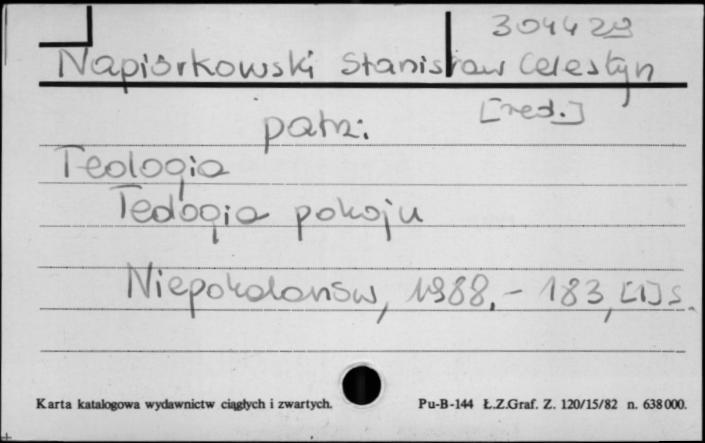 304429
Napiórkowski Stanisław Celestyn
[red.]
patrz:
Teologia
Teologia pokoju
Niepokalanów, 1988, - 183, [1] s.
Karta katalogowa wydawnictw ciągłych i zwartych.
Pu-B-144 Ł.Z.Graf. Z. 120/15/82 n. 638000.